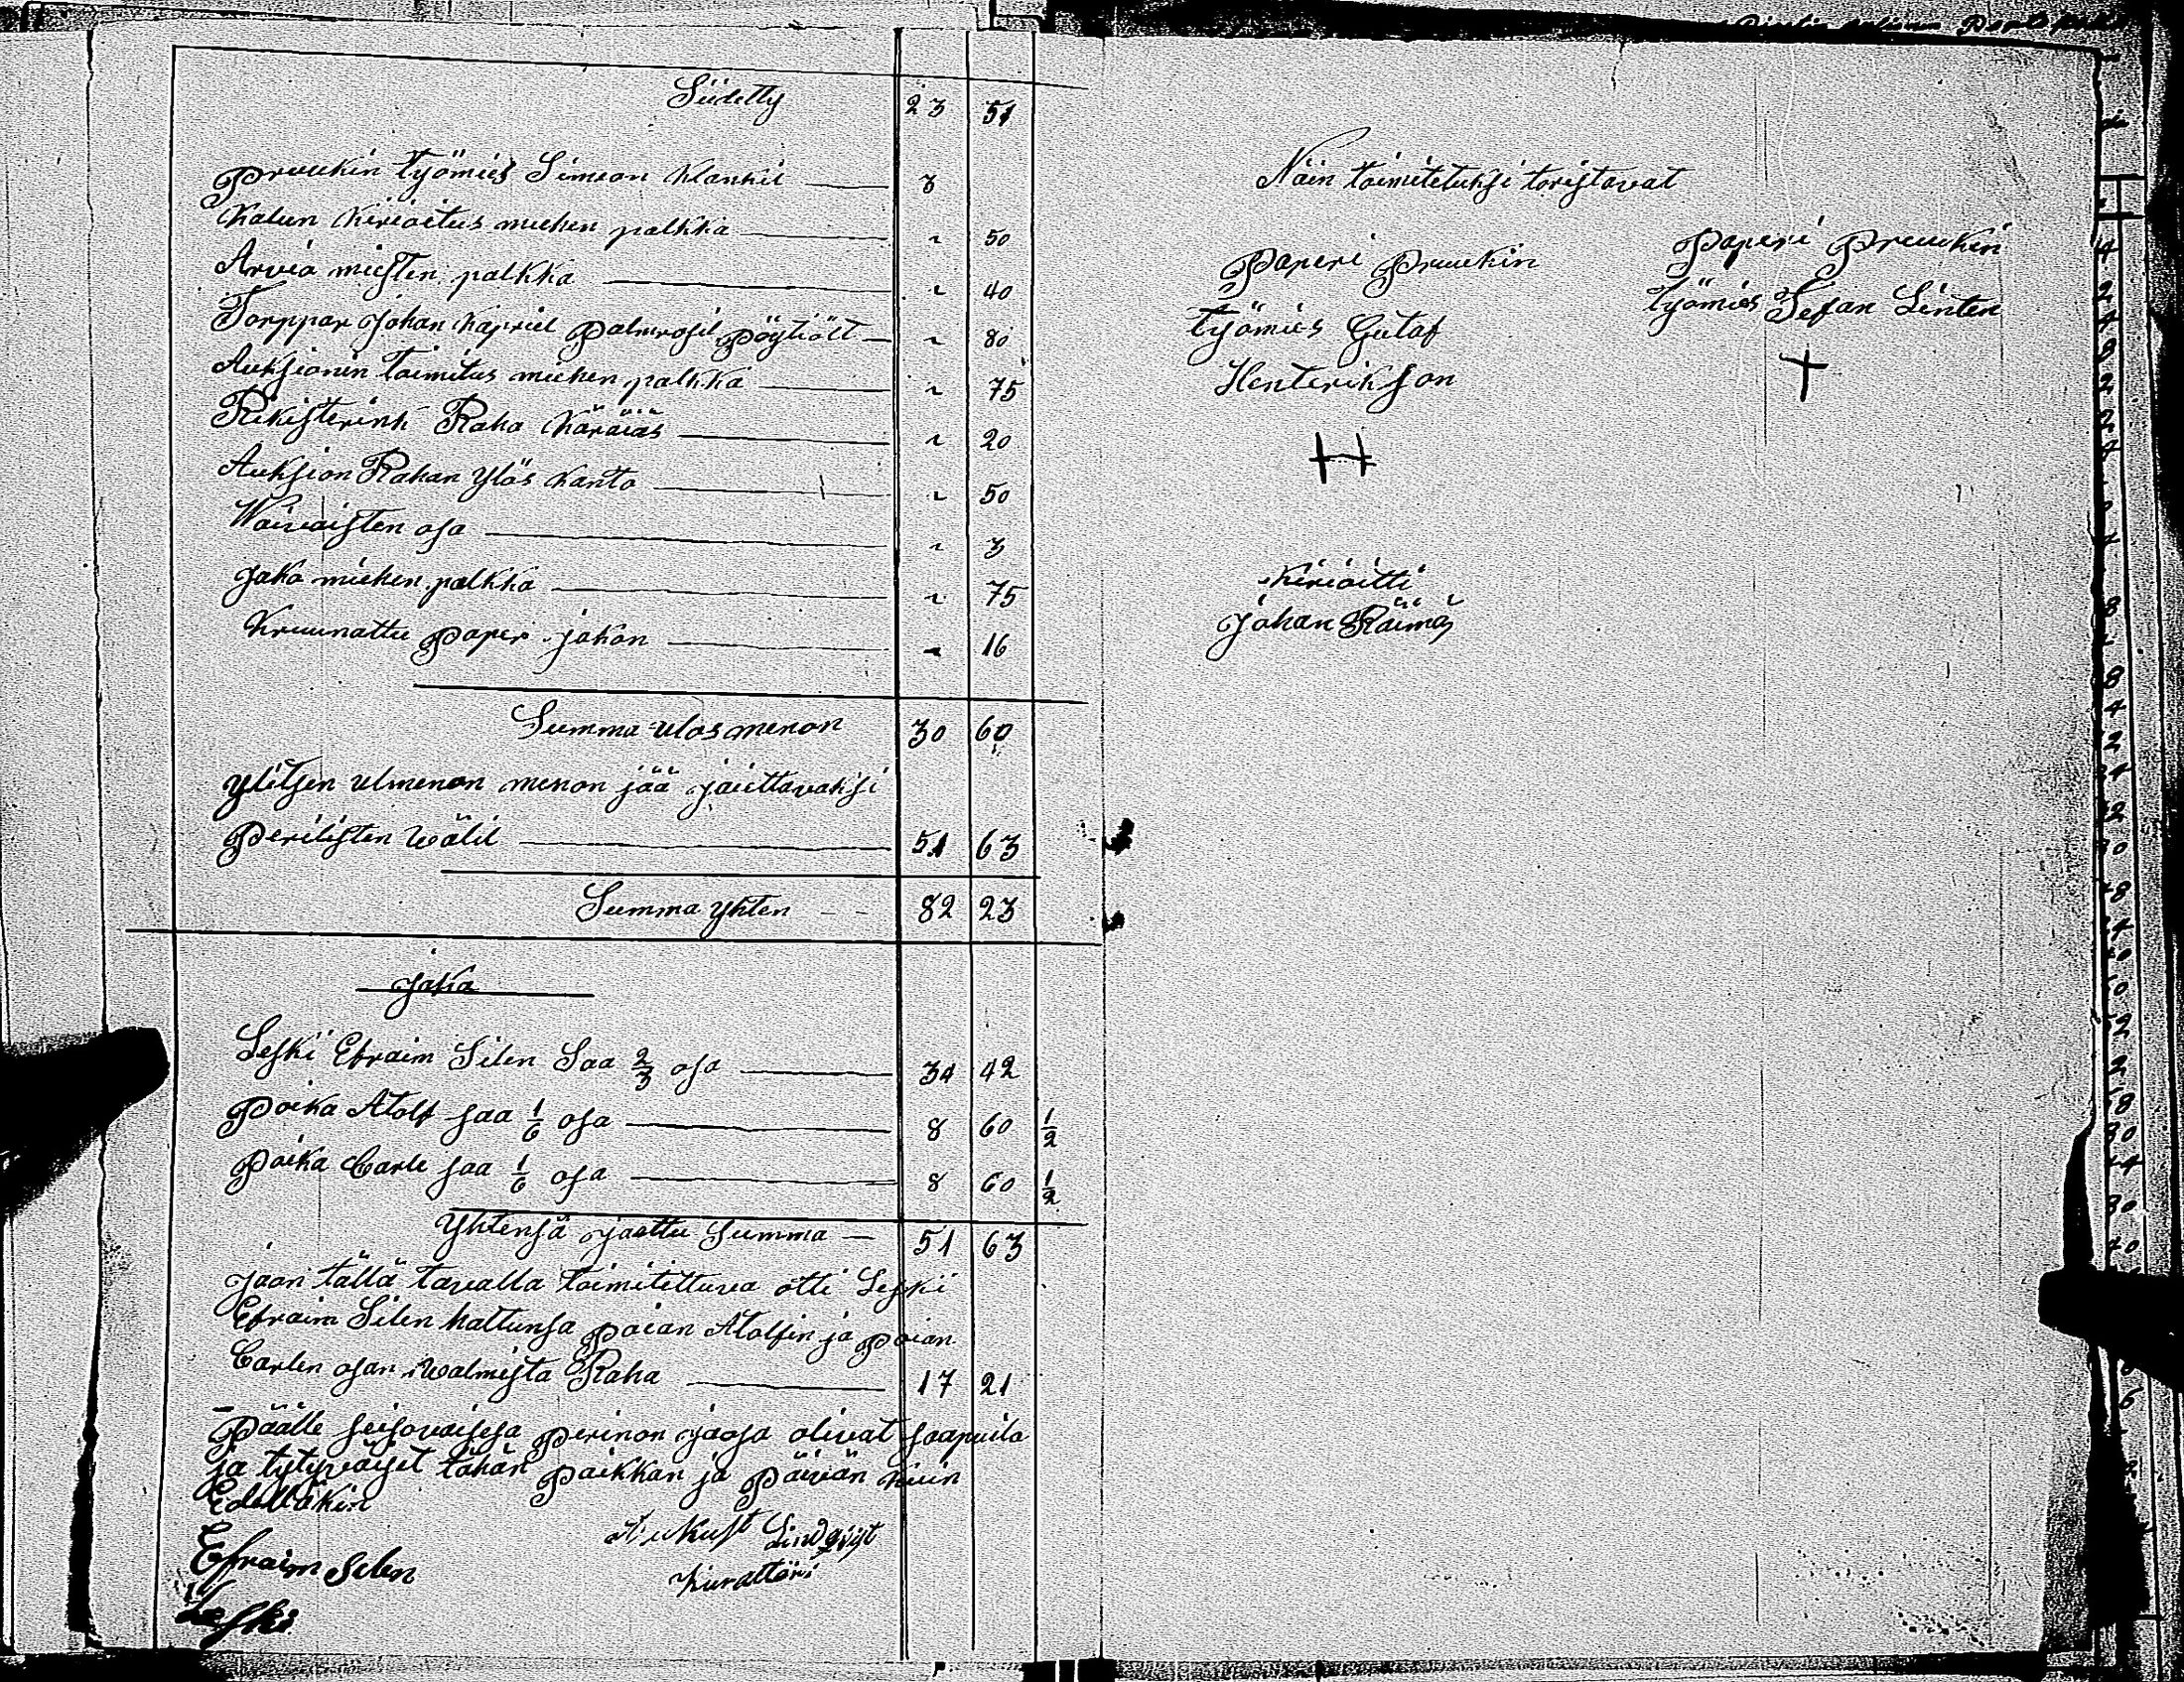 Siidetty 23 51
Pruukin Työmies Simeon Klankil 3
Kalun Kirioitus miehen palkka " 50
Arvio miesten palkka " 40
Torppar Johan Kapriel Palmrosil Pöytiölt " 80
Auksionin Toimitus miehen palkka " 75
Rikisterink Raha Käräiäs " 20
Auksion Rahan Ylös Kanto " 50
Waivaisten osa " 3
Jako miehen palkka " 75
Kruunattu Paperi jakon " 16
Summa ulos menon 30 60
Ylitsen ulmenon menon jää jaiettavaksi
Perilisten Wälil 51 63
Summa Yhten - - 82 23
Jaka
Leski Efraim Silen Saa 2/3 osa 34 42
Poika Atolf saa 1/6 osa 8 60 1/2
Poika Carle saa 1/6 osa 8 60 1/2
Yhtensä jaettu Summa 51 63
Jaon tällä tavalla toimitettuva otti Leski
Efraim Silen haltunsa Poian Atolfin ja Poian
Carlen osan Walmista Raha 17 21
Päälle seisovaisesa Perinon jaosa olivat saapuila
ja tytyväiset tähän Paikkan ja Päivän niiin
Edelläkin
Aukust Lindqvist
Kurattöri
Efraim Silen
Leski
Näin toimitetuksi toristavat
Paperi Pruukin
Työmies Gutaf
Henterikson
H
Paperi Pruukin
Työmies Sefan Linten
+
Kirioitti
Johan Räimä